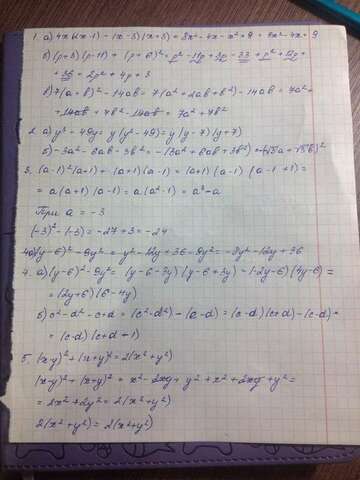 1. а) 4x(x-1) - (x-3)(x+3) = 8x² - 4x - x² + 9 = 7x² - 4x + 9
б) (p+3)(p-11) + (p+6)² = p² - 11p + 3p - 33 + p² + 12p +
+ 36 = 2p² + 4p + 3
в) 7(a+b)² - 14ab = 7(a² + 2ab + b²) - 14ab = 7a² +
+ 14ab + 7b² - 14ab = 7a² + 7b²
2. а) y³ - 49y = y(y² - 49) = y(y-7)(y+7)
б) -3a² - 6ab - 3b² = -(3a² + 6ab + 3b²)
3. (a-1)²(a+1) + (a+1)(a-1) = (a+1)(a-1)(a-1+1) =
= a(a+1)(a-1) = a(a²-1) = a³ - a
При a = -3
(-3)³ - (-3) = -27 + 3 = -24
(y-6)² - 9y² = y² - 12y + 36 - 9y² = -8y² - 12y + 36
4. а) (y-6)² - 9y² = (y-6-3y)(y-6+3y) = (-2y-6)(4y-6) =
= (2y+6)(6-4y)
б) c² - d² - c + d = (c²-d²) - (c-d) = (c-d)(c+d) - (c-d) =
= (c-d)(c+d+1)
5. (x-y)² + (x+y)² = 2(x²+y²)
(x-y)² + (x+y)² = x² - 2xy + y² + x² + 2xy + y² =
= 2x² + 2y² = 2(x²+y²)
2(x²+y²) = 2(x²+y²)